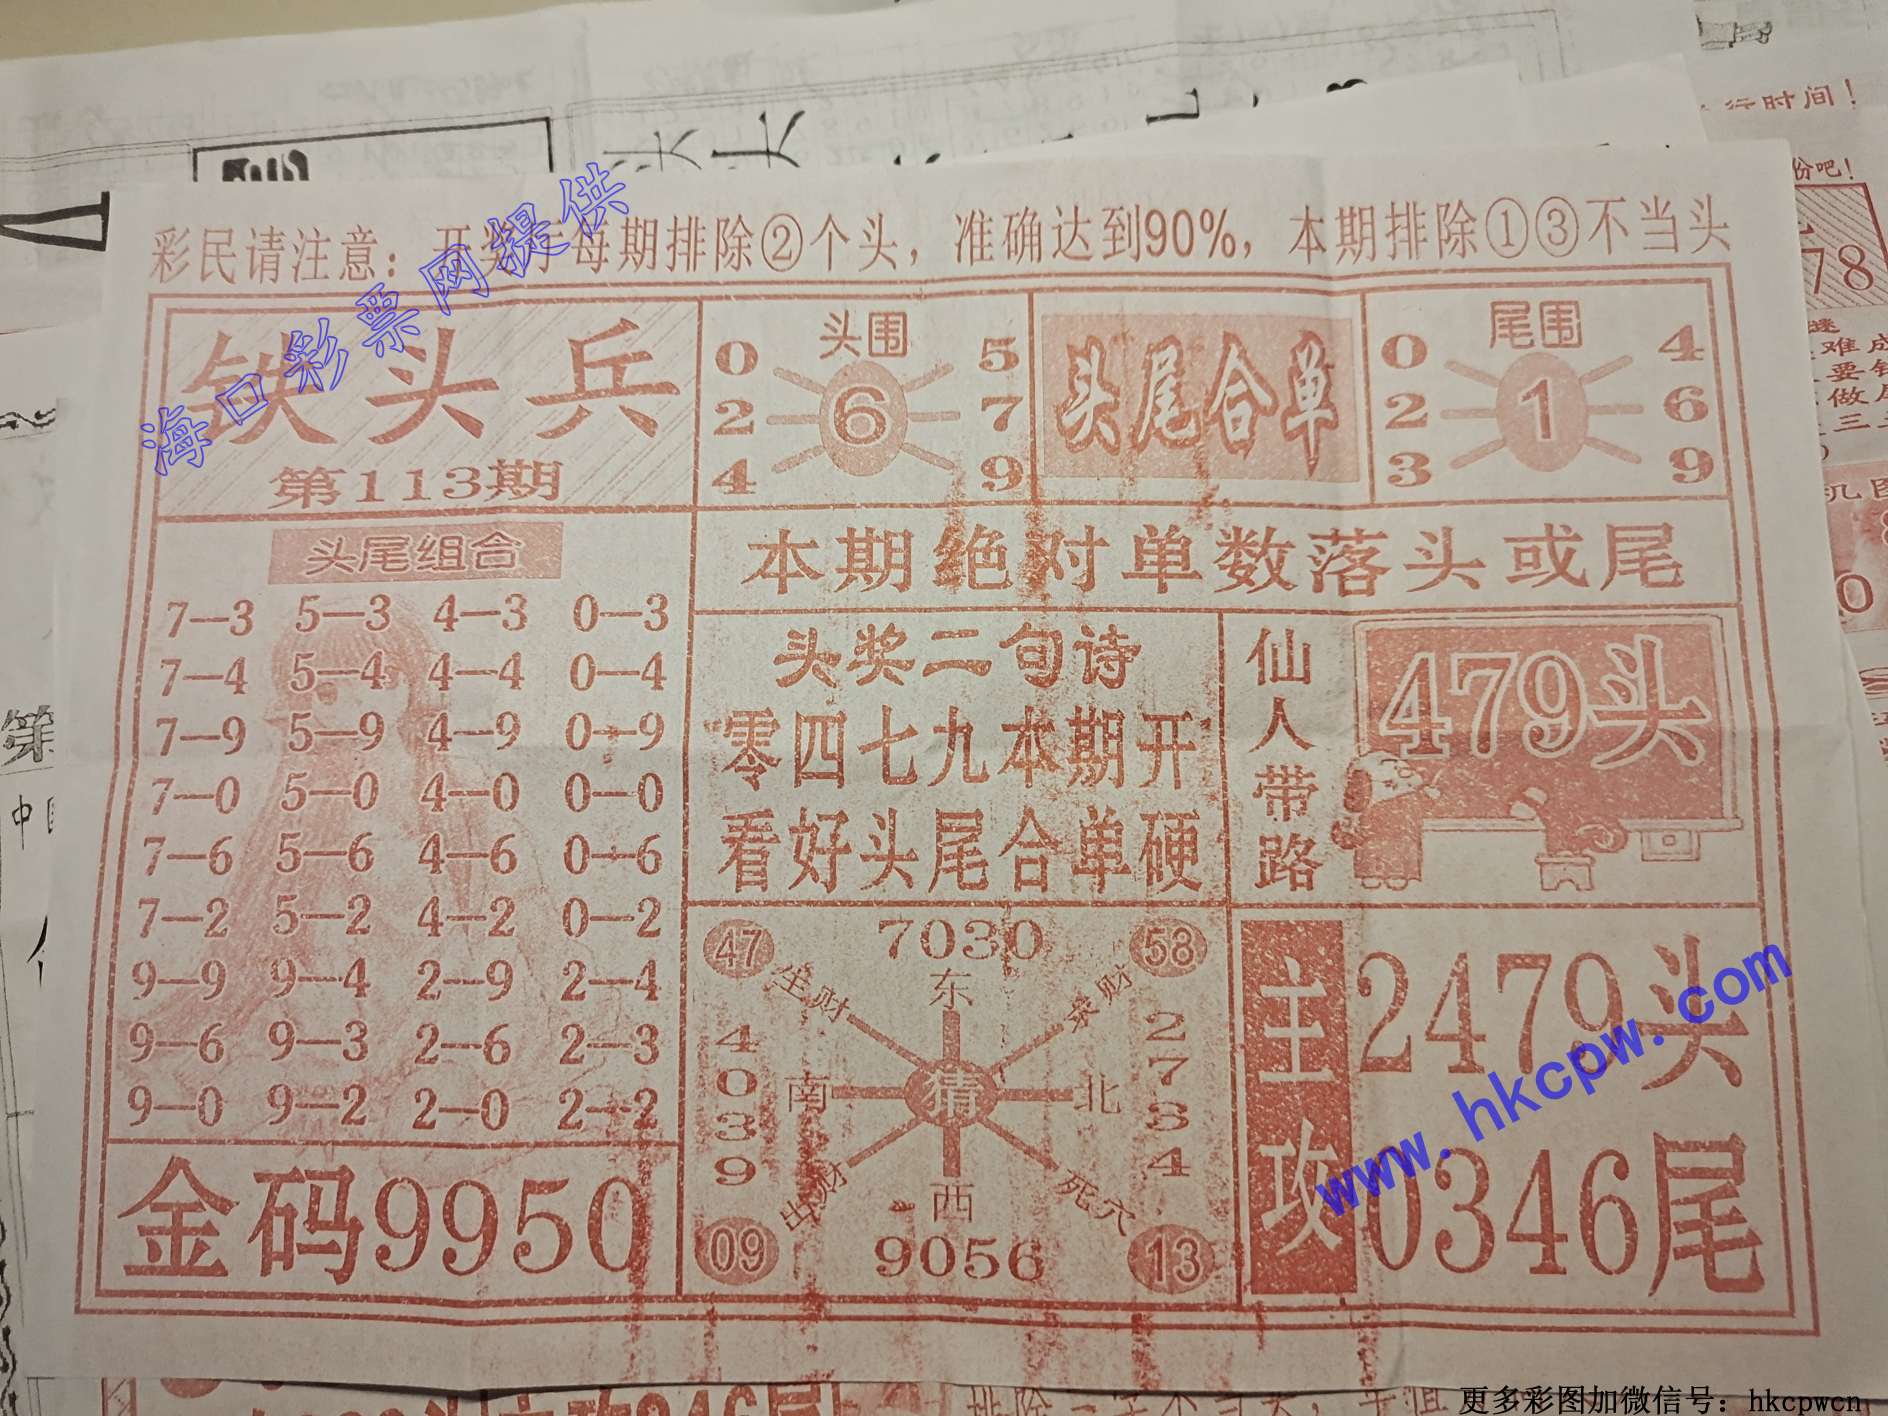 彩民请注意：开奖于每期排除②个头，准确达到90%，本期排除①③不当头
海口彩票网提供
铁头兵
第113期
头围
0 5
2 6 7
4 9
头尾合单
尾围
0 4
2 1 6
3 9
头尾组合
7—3 5—3 4—3 0—3
7—4 5—4 4—4 0—4
7—9 5—9 4—9 0—9
7—0 5—0 4—0 0—0
7—6 5—6 4—6 0—6
7—2 5—2 4—2 0—2
9—9 9—4 2—9 2—4
9—6 9—3 2—6 2—3
9—0 9—2 2—0 2—2
金码9950
本期绝对单数落头或尾
头奖二句诗
零四七九本期开
看好头尾合单硬
仙人带路
479头
47 7030 58
生财 东
财
4039
南 猜 北
2734
出财 西 死穴
09 9056 13
主攻
2479头
0346尾
www.hkcpw.com
行时间！
份吧！
78
难成
要钱
做尾
三
机图
0
第
中国
更多彩图加微信号：hkcpwcn